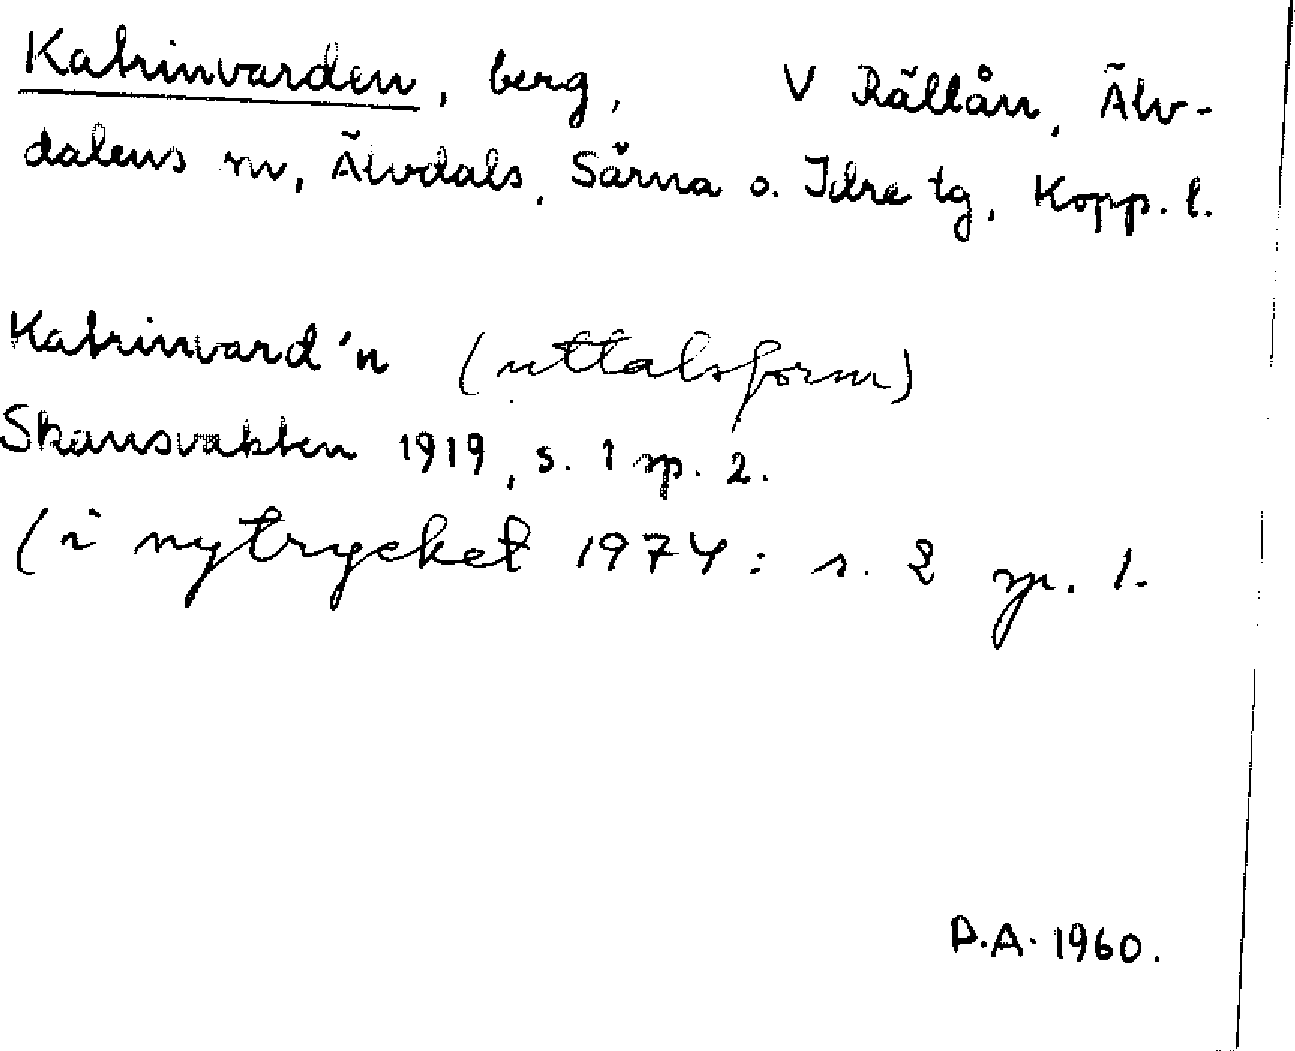 Katrinvarden, berg, V Rällån, Älv-
dalens sn, Älvdals, Särna o. Idre tg, Kopp. l.
Katrinvard'n (uttalsform)
Skansvakten 1919, s. 1 sp. 2.
(i nytrycket 1974: s. 2 sp. 1.
D.A. 1960.